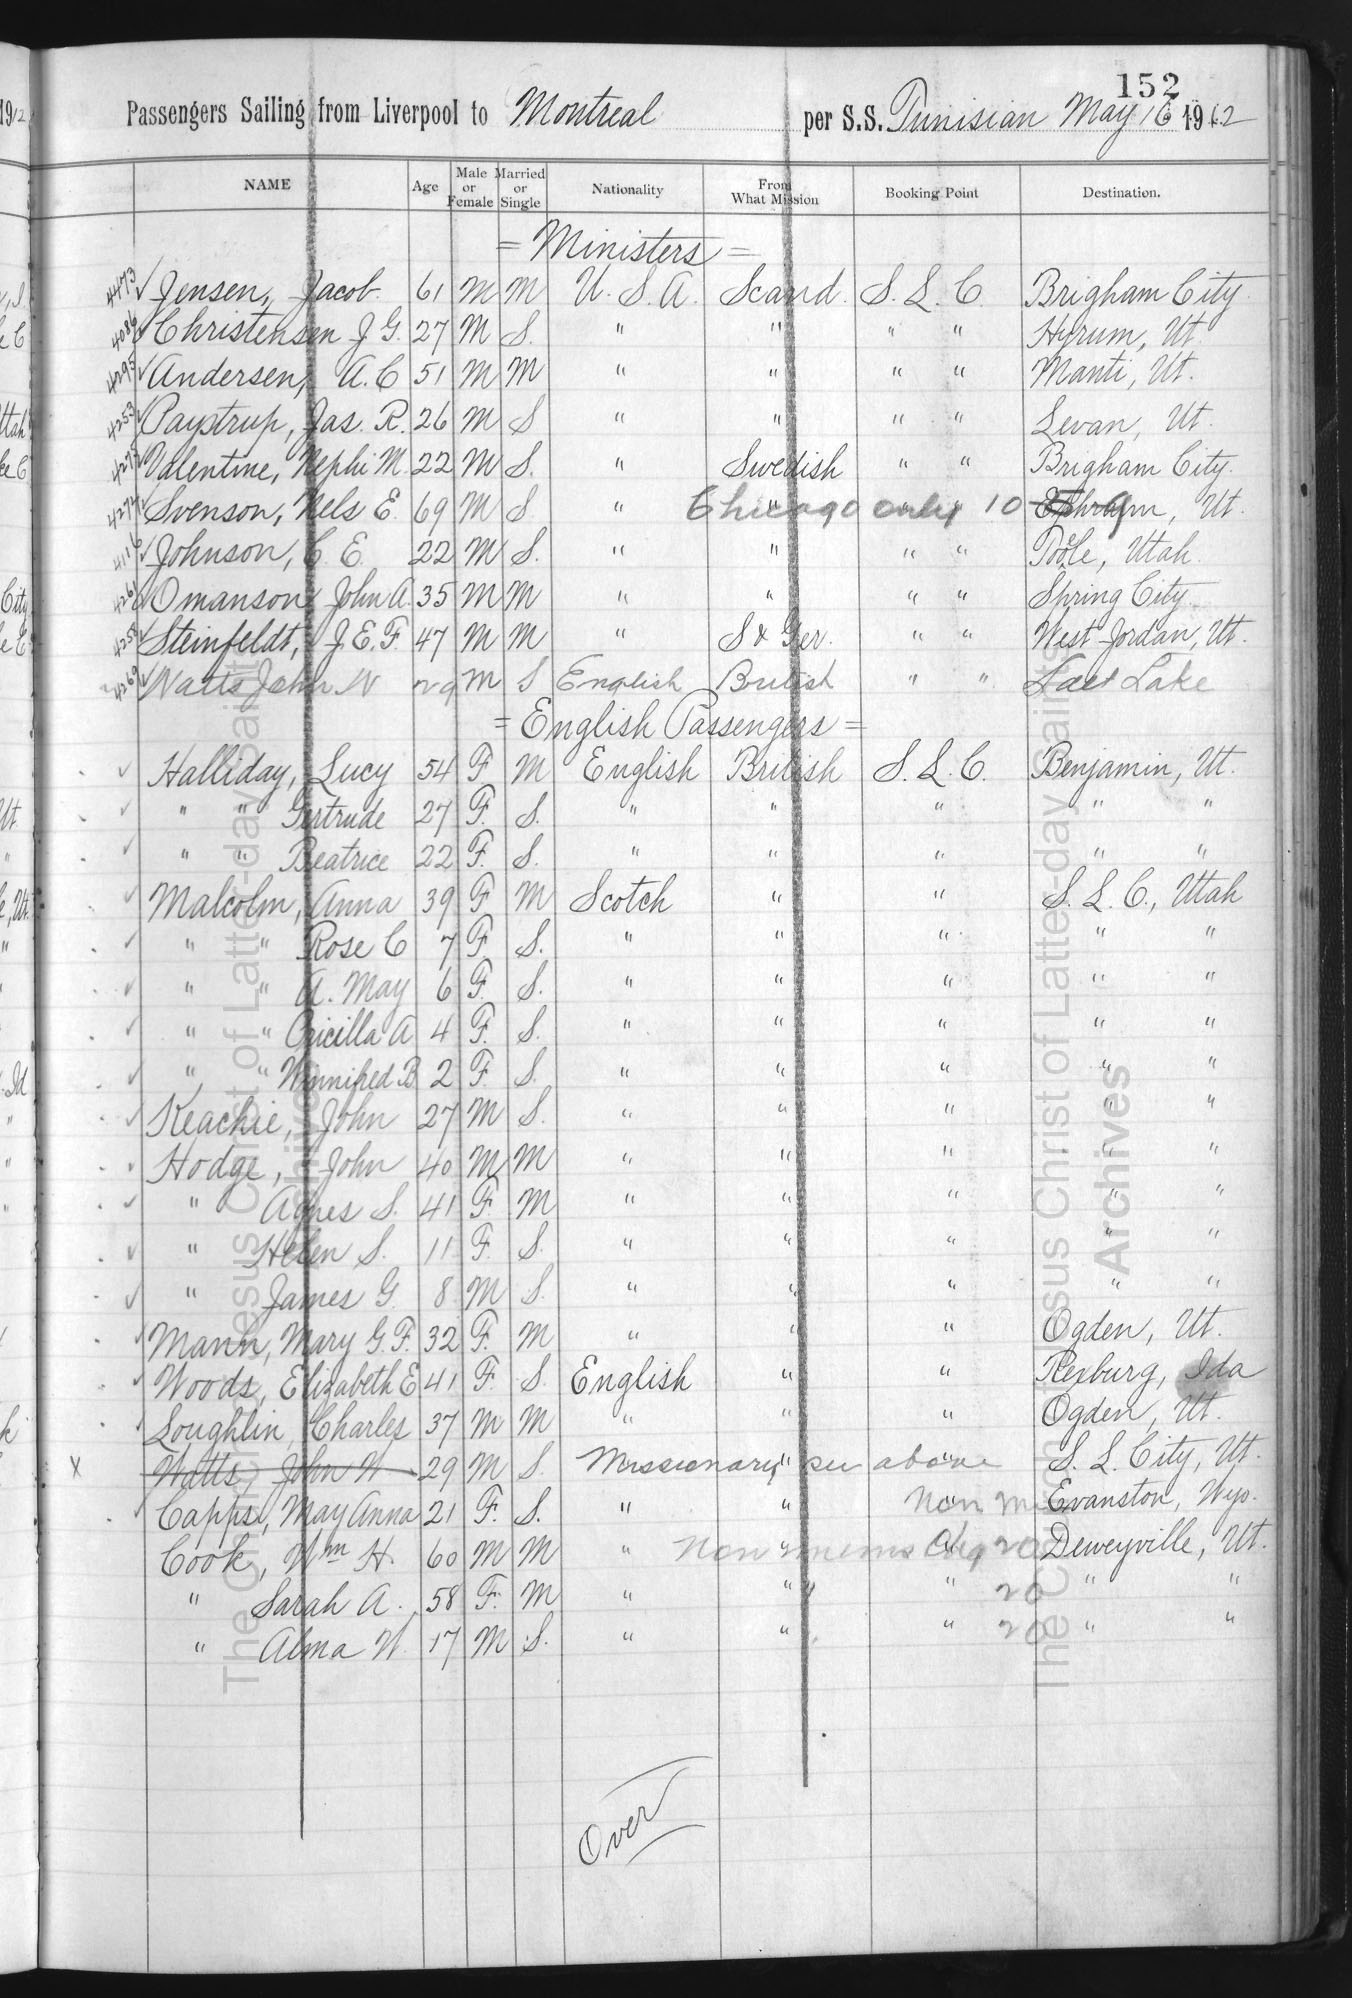 152
Passengers Sailing from Liverpool to Montreal per S.S. Tunisian May 16 1912
NAME Age Male or Female Married or Single Nationality From What Mission Booking Point Destination.
= Ministers =
4473 ✓ Jensen, Jacob 61 M M U. S. A. Scand. S. L. C. Brigham City.
4086 ✓ Christensen J. G. 27 M S. " " " " Hyrum, Ut.
4295 ✓ Andersen, A. C 51 M M " " " " Manti, Ut.
4253 ✓ Paystrup, Jas. R. 26 M S " " " " Levan, Ut.
4273 ✓ Valentine, Nephi M. 22 M S. " Swedish " " Brigham City.
4274 ✓ Svenson, Nels E. 69 M S " Chicago only 10 Ephraim, Ut.
4116 ✓ Johnson, C. E. 22 M S. " " " " Utah.
4261 ✓ Omanson John A. 35 M M " " " " Spring City
4258 ✓ Steinfeldt, J. E. F. 47 M M " S & Ger. " " West Jordan, Ut.
4269 ✓ Watts John W 29 M S English British " " Salt Lake
= English Passengers =
✓ Halliday, Lucy 54 F M English British S. L. C. Benjamin, Ut.
✓ " " Gertrude 27 F. S. " " " " "
✓ " " Beatrice 22 F. S. " " " " "
✓ Malcolm, Anna 39 F M Scotch " " S. L. C., Utah
✓ " " Rose C 7 F S. " " " " "
✓ " " A. May 6 F. S. " " " " "
✓ " " Pricilla A 4 F. S. " " " " "
✓ " " Winnifred B 2 F. S. " " " " "
✓ Keachie, John 27 M S. " " " " "
✓ Hodge, John 40 M M " " " " "
✓ " Agnes S. 41 F. M " " " " "
✓ " Helen S. 11 F. S. " " " " "
✓ " James G. 8 M S. " " " " "
✓ Mann, Mary G. F. 32 F. M " " " Ogden, Ut.
✓ Woods, Elizabeth E 41 F. S. English " " Rexburg, Ida
✓ Loughlin, Charles 37 M M " " " Ogden, Ut.
X Watts, John W 29 M S. Missionary per above S. L. City, Ut.
✓ Capps, May Anna 21 F. S. " " Non Evanston, Wyo.
Cook, Wm H. 60 M M " Non mems Deweyville, Ut.
" Sarah A. 58 F. M " " " 20 " "
" Alma W. 17 M S. " " " 20 " "
Over
The Church of Jesus Christ of Latter-day Saints
Archives
The Church of Jesus Christ of Latter-day Saints
Archives